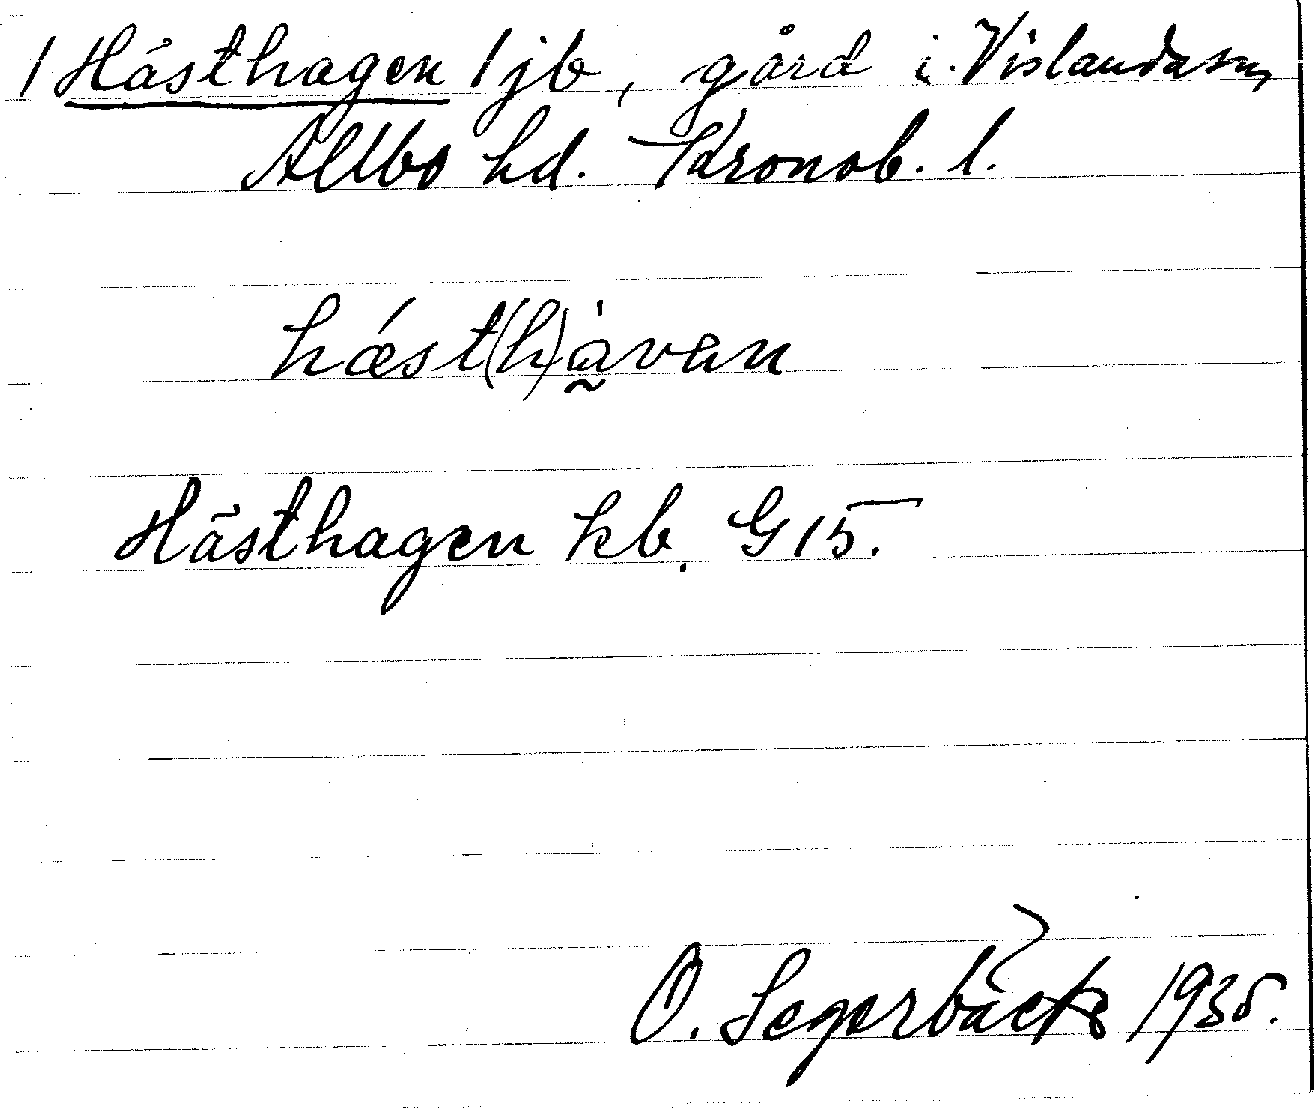 /Hästhagen/jb, gård i Vislanda sn,
Allbo hd. Kronob. l.
hǽst(h)à̰van
Hästhagen kb. G15.
O. Segerbäck 1935.